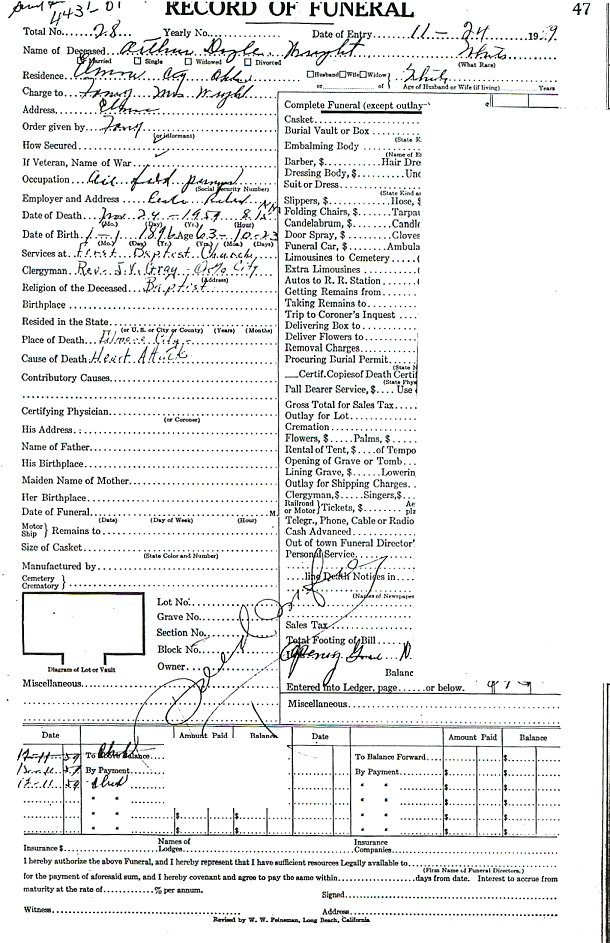 4431-01
RECORD OF FUNERAL 47
Total No. 28 Yearly No. Date of Entry 11-24 1959
Name of Deceased Arthur Doyle Wright White
Married Single Widowed Divorced (What Race)
Residence Husband Wife Widow
Age of Husband or Wife (if living) Years
Charge to Family Mrs Wright
Address
Order given by
(or informant)
How Secured
If Veteran, Name of War
Occupation Oil field pumper
(Social Security Number)
Employer and Address
Date of Death Nov. 24 - 1959 8
(Mo.) (Day) (Yr.) (Hour)
Date of Birth 1-1 1896 Age 63-10-23
(Mo.) (Day) (Yr.) (Yrs.) (Mo.) (Days)
Services at First Baptist Church
Clergyman Rev. J.V. Gray
(Address)
Religion of the Deceased Baptist
Birthplace
Resided in the State
(or U.S. or City or County) (Years) (Months)
Place of Death
Cause of Death Heart Attack
Contributory Causes
Certifying Physician
(or Coroner)
His Address
Name of Father
His Birthplace
Maiden Name of Mother
Her Birthplace
Date of Funeral M.
(Date) (Day of Week) (Hour)
Motor Ship } Remains to
Size of Casket
(State Color and Number)
Manufactured by
Cemetery Crematory }
Lot No.
Grave No.
Section No.
Block No.
Owner
Diagram of Lot or Vault
Miscellaneous
Complete Funeral (except outlay
Casket
Burial Vault or Box
(State K
Embalming Body
(Name of E
Barber, $ Hair Dre
Dressing Body, $ Und
Suit or Dress
(State Kind a
Slippers, $ Hose, $
Folding Chairs, $ Tarpa
Candelabrum, $ Candle
Door Spray, $ Gloves
Funeral Car, $ Ambula
Limousines to Cemetery
Extra Limousines
Autos to R. R. Station
Getting Remains from
Taking Remains to
Trip to Coroner's Inquest
Delivering Box to
Deliver Flowers to
Removal Charges
Procuring Burial Permit
(State N
Certif. Copies of Death Certif
(State Phys
Pall Bearer Service, $ Use
Gross Total for Sales Tax
Outlay for Lot
Cremation
Flowers, $ Palms, $
Rental of Tent, $ of Tempo
Opening of Grave or Tomb
Lining Grave, $ Lowerin
Outlay for Shipping Charges
Clergyman, $ Singers, $
Railroad or Motor } Tickets, $ Ae pla
Telegr., Phone, Cable or Radio
Cash Advanced
Out of town Funeral Director'
Personal Service
line Death Notices in
(Names of Newspaper
Sales Tax
Total Footing of Bill
Balanc
Entered into Ledger, page or below.
Miscellaneous
Date Amount Paid Balance Date Amount Paid Balance
12-11 59 To Balance To Balance Forward $
59 By Payment By Payment $
12-11 59 " " " " $
" " " " $
" " $ $ " " $
" " $ $ " " $
Insurance $ Names of Lodges Insurance Companies
I hereby authorize the above Funeral, and I hereby represent that I have sufficient resources Legally available to
(First Name of Funeral Directors.)
for the payment of aforesaid sum, and I hereby covenant and agree to pay the same within days from date. Interest to accrue from
maturity at the rate of % per annum.
Signed
Witness Address
Revised by W. W. Feinsman, Long Beach, California